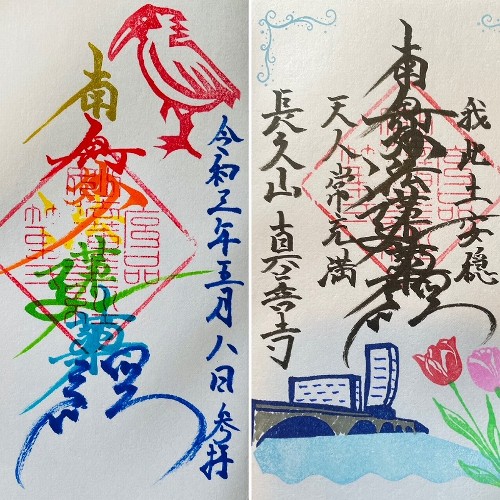 令和三年五月八日参拝
南無妙法蓮華経
我此土安穏
南無妙法蓮華経
天人常充満
長久山真善寺